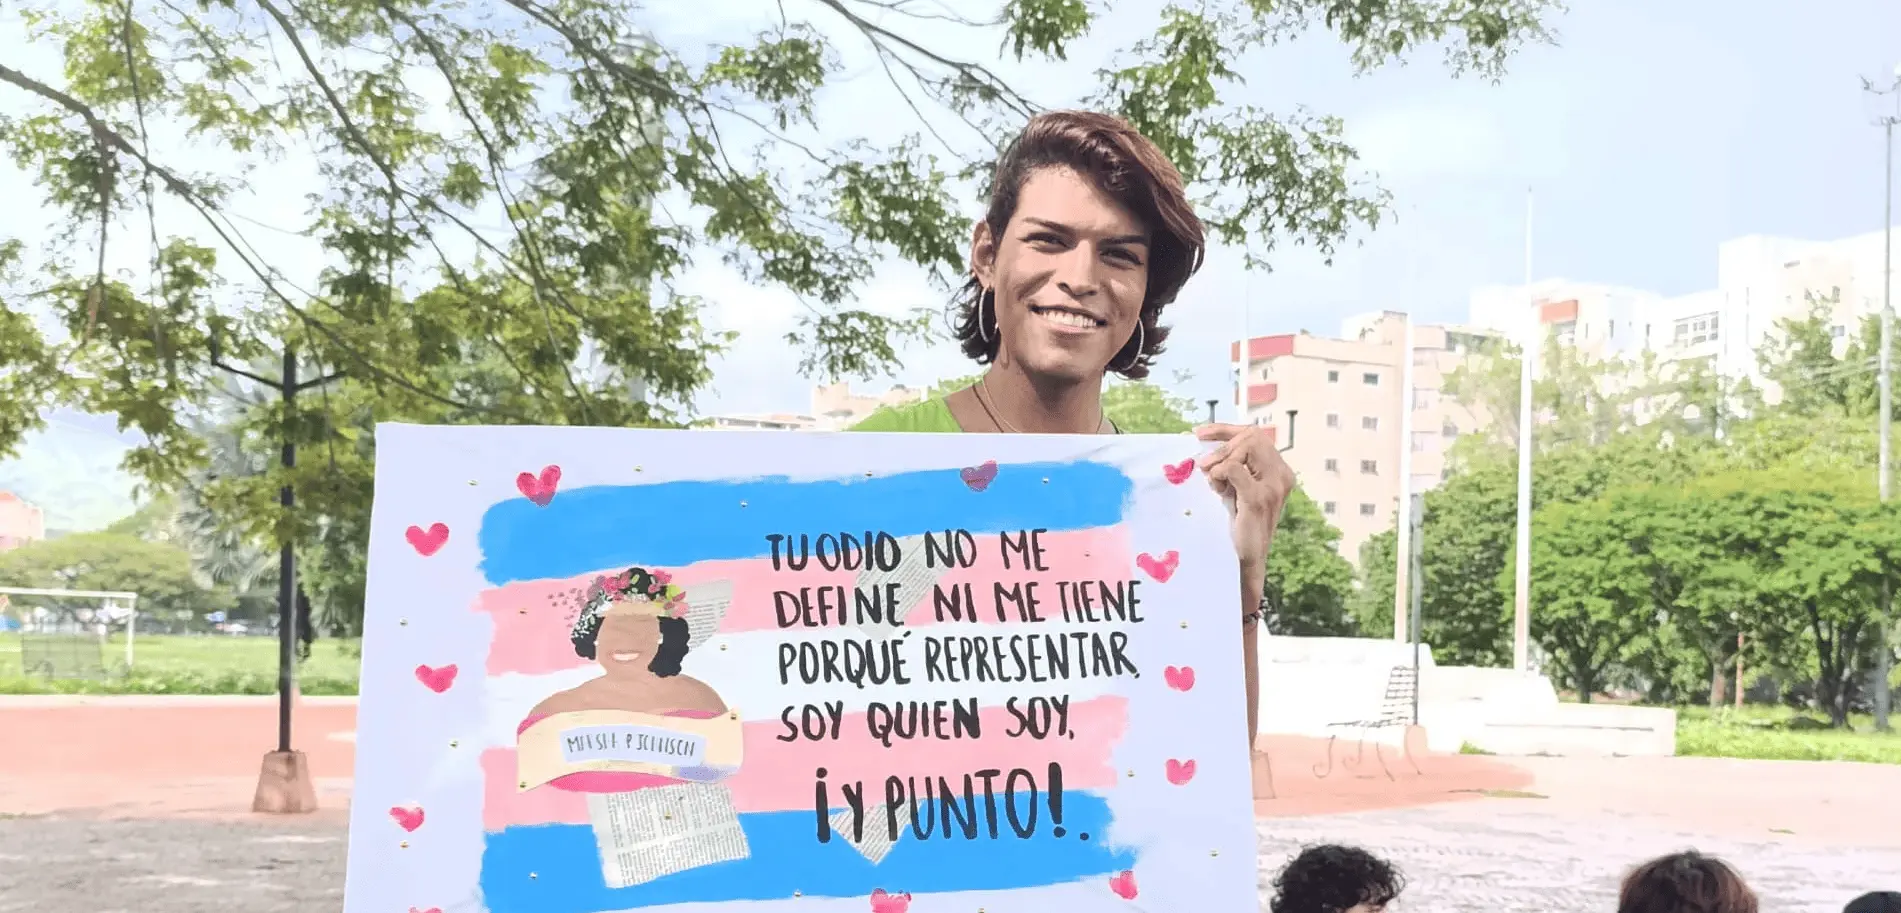 TU ODIO NO ME
DEFINE NI ME TIENE
PORQUÉ REPRESENTAR,
SOY QUIEN SOY,
¡Y PUNTO!.